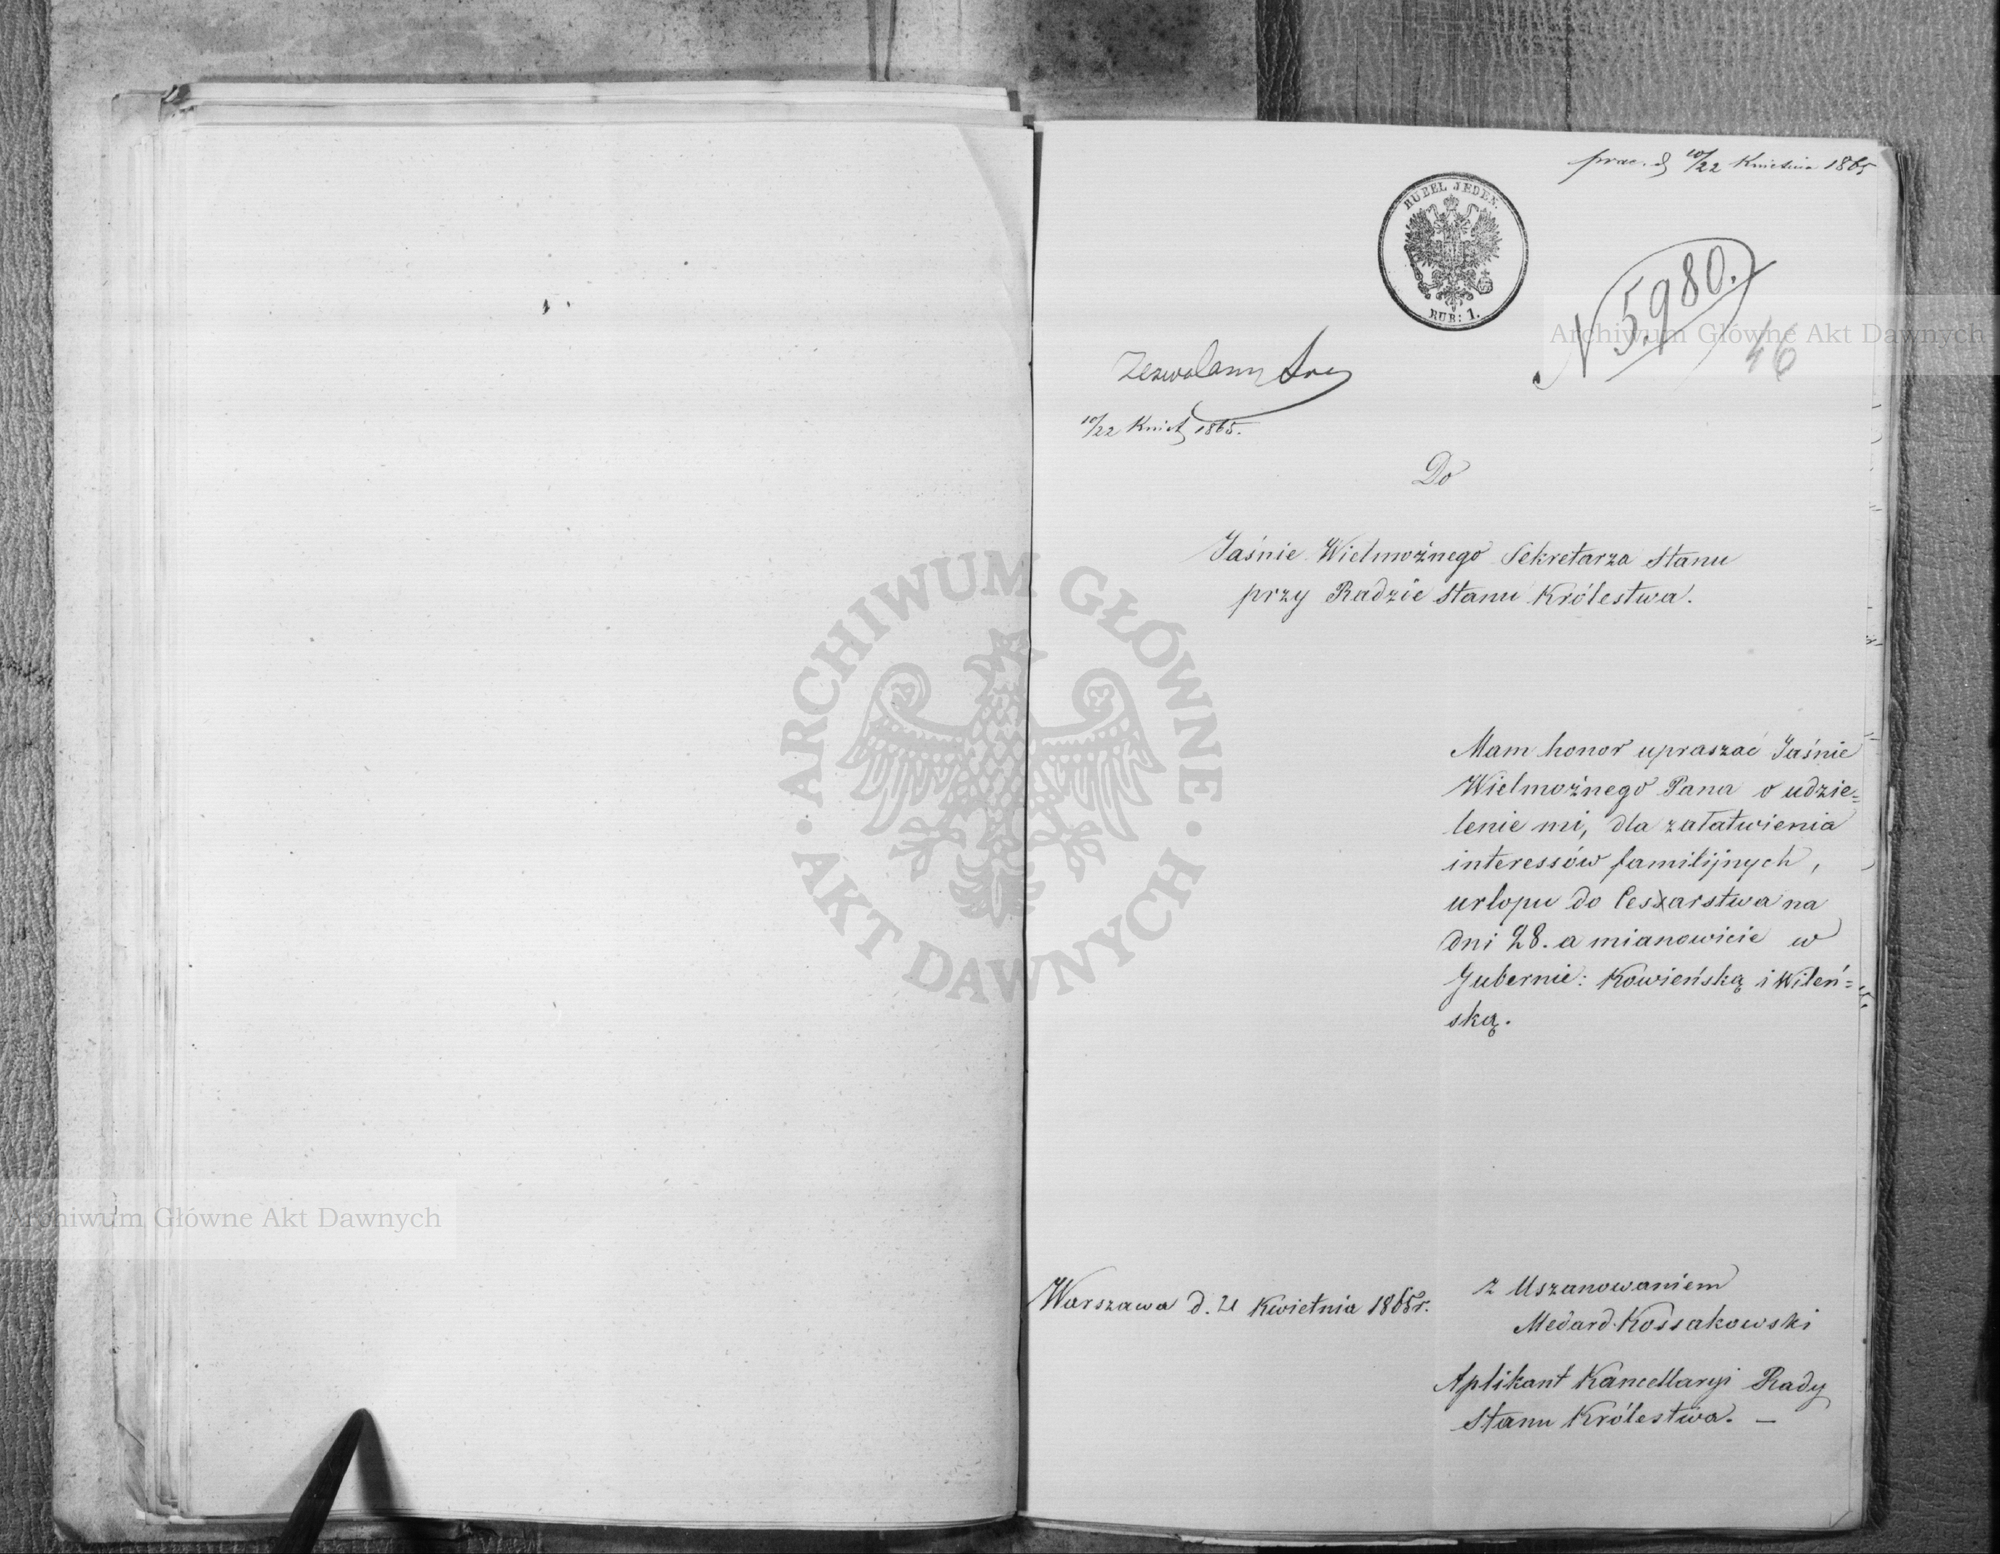 10/22 Kwietnia 1865
RUBEL JEDEN.
RUB: 1.
N 5,980.
46
Zezwalam
10/22 Kwiet 1865.
Do
Jaśnie Wielmożnego Sekretarza Stanu
przy Radzie Stanu Królestwa.
Mam honor upraszać Jaśnie
Wielmożnego Pana o udzie=
lenie mi, dla załatwienia
interessów familijnych,
urlopu do Cesarstwa na
dni 28. a mianowicie w
Gubernie: Kowieńską i Wileń=
ską.
Warszawa d. 21 Kwietnia 1865r.
z Uszanowaniem
Medard Kossakowski
Aplikant Kancellaryi Rady
Stanu Królestwa. —
Archiwum Główne Akt Dawnych
ARCHIWUM GŁÓWNE
· AKT DAWNYCH ·
Archiwum Główne Akt Dawnych